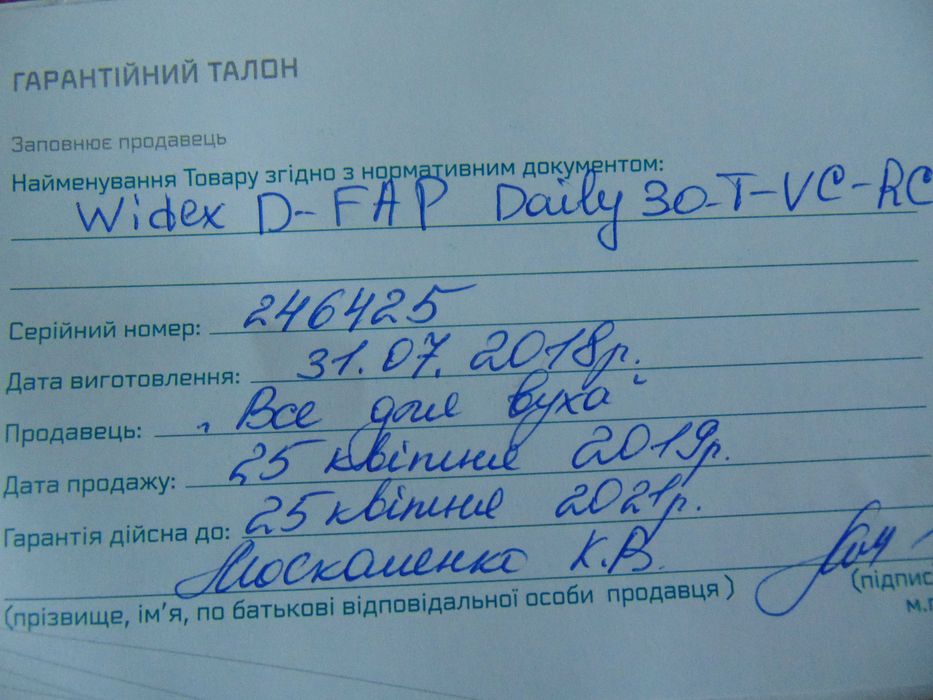 ГАРАНТІЙНИЙ ТАЛОН
Заповнює продавець
Найменування Товару згідно з нормативним документом:
Widex D-FAP Daily 30-T-VC-RC
Серійний номер: 246425
Дата виготовлення: 31.07.2018р.
Продавець: „Все для вуха“
Дата продажу: 25 квітня 2019р.
Гарантія дійсна до: 25 квітня 2021р.
Москаленко К.В.
(прізвище, ім’я, по батькові відповідальної особи продавця) (підпис
м.п